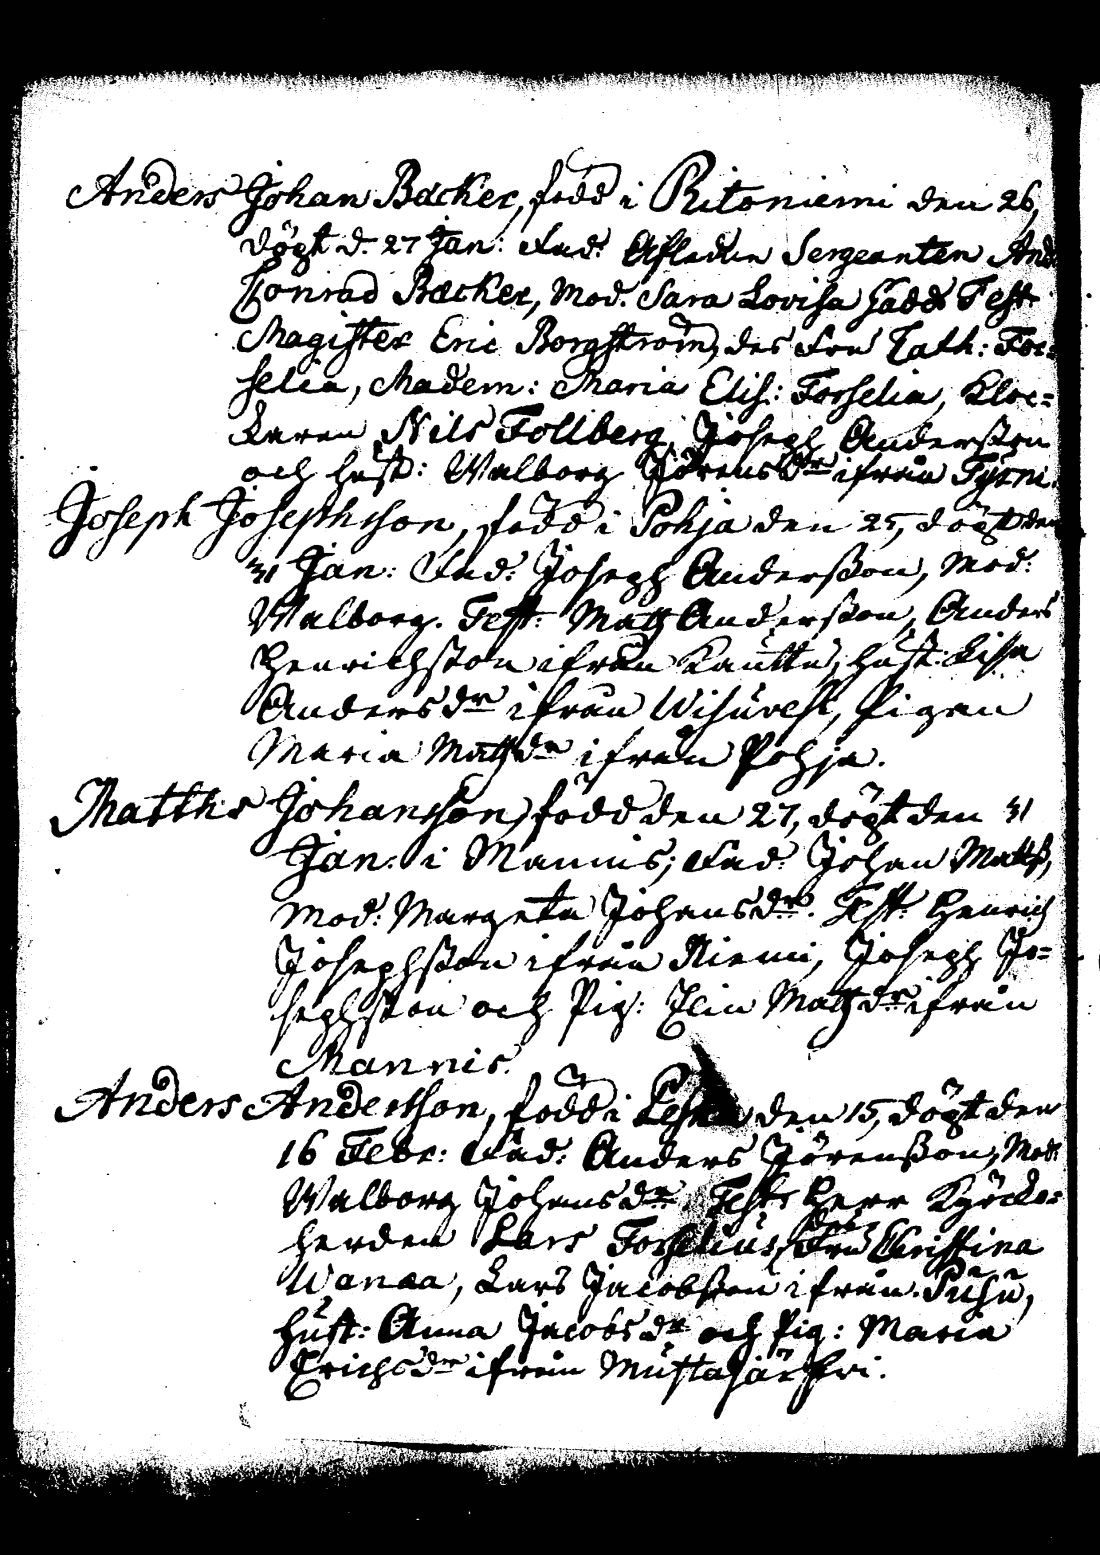 Anders Johan Backer, född i Ritoniemi den 26,
dögt d. 27 Jan: Fad: Afledne Sergeanten And.
Conrad Backer, Mod. Sara Lovisa Test:
Magister Eric Borgström, des Fru Cath: For=
selia, Madem: Maria Elis: Forselia, Kloc=
karen Nils Follberg, Joseph Andersson
och hust: Walborg Jörensdr ifrån Tyrni.
Joseph Josephsson, född i Pohja den 25, dögt den
31 Jan: Fad: Joseph Andersson, Mod:
Walborg. Test: Matz Andersson, Anders
Henrichsson ifrån Kauttu, hust: Lisa
Andersdr ifrån Wisuvesi, Pigan
Maria Matzdr ifrån Pohja.
Matths Johansson, född den 27, dögt den 31
Jan: i Mannis; Fad: Johan Matss,
Mod: Margeta Johansdr. Test: Henrich
Josephsson ifrån Niemi, Joseph Jo=
sephsson och Pig: Elin Matzdr ifrån
Mannis.
Anders Andersson, född i den 15, dögt den
16 Febr: Fad: Anders Jörensson, Mod:
Walborg Johansdr. Test: Herr Kyrcko=
herden Lars Forselius, Fru Christina
Wanaa, Lars Jacobsson ifrån Puhu,
hust: Anna Jacobsdr och Pig: Maria
Erichsdr ifrån Mustajärfvi.